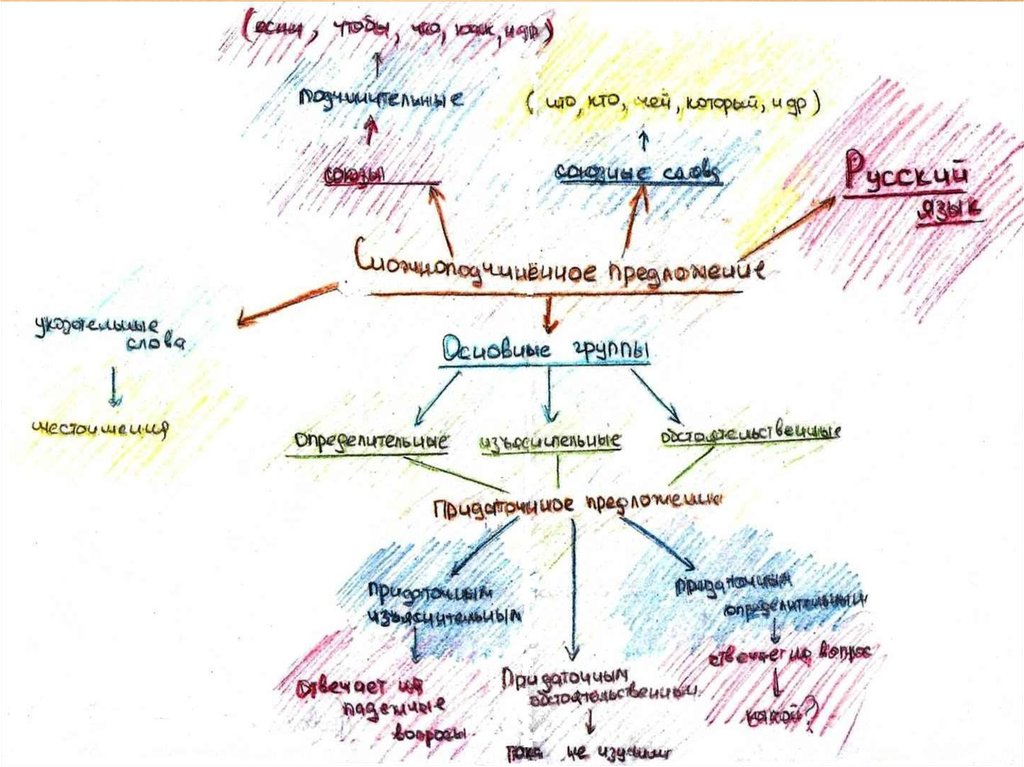 (если, чтобы, что, как, и др)
подчинительные
(что, кто, чей, который, и др)
союзы
союзные слова
Русский
язык
Сложноподчинённое предложение
указательные
слова
Основные группы
местоимения
определительные
изъяснительные
обстоятельственные
Придаточное предложение
Придаточным
изъяснительным
Придаточным
определительным
Отвечает на
падежные
вопросы
Придаточным
обстоятельственным
отвечает на вопрос
какой?
пока не изучили